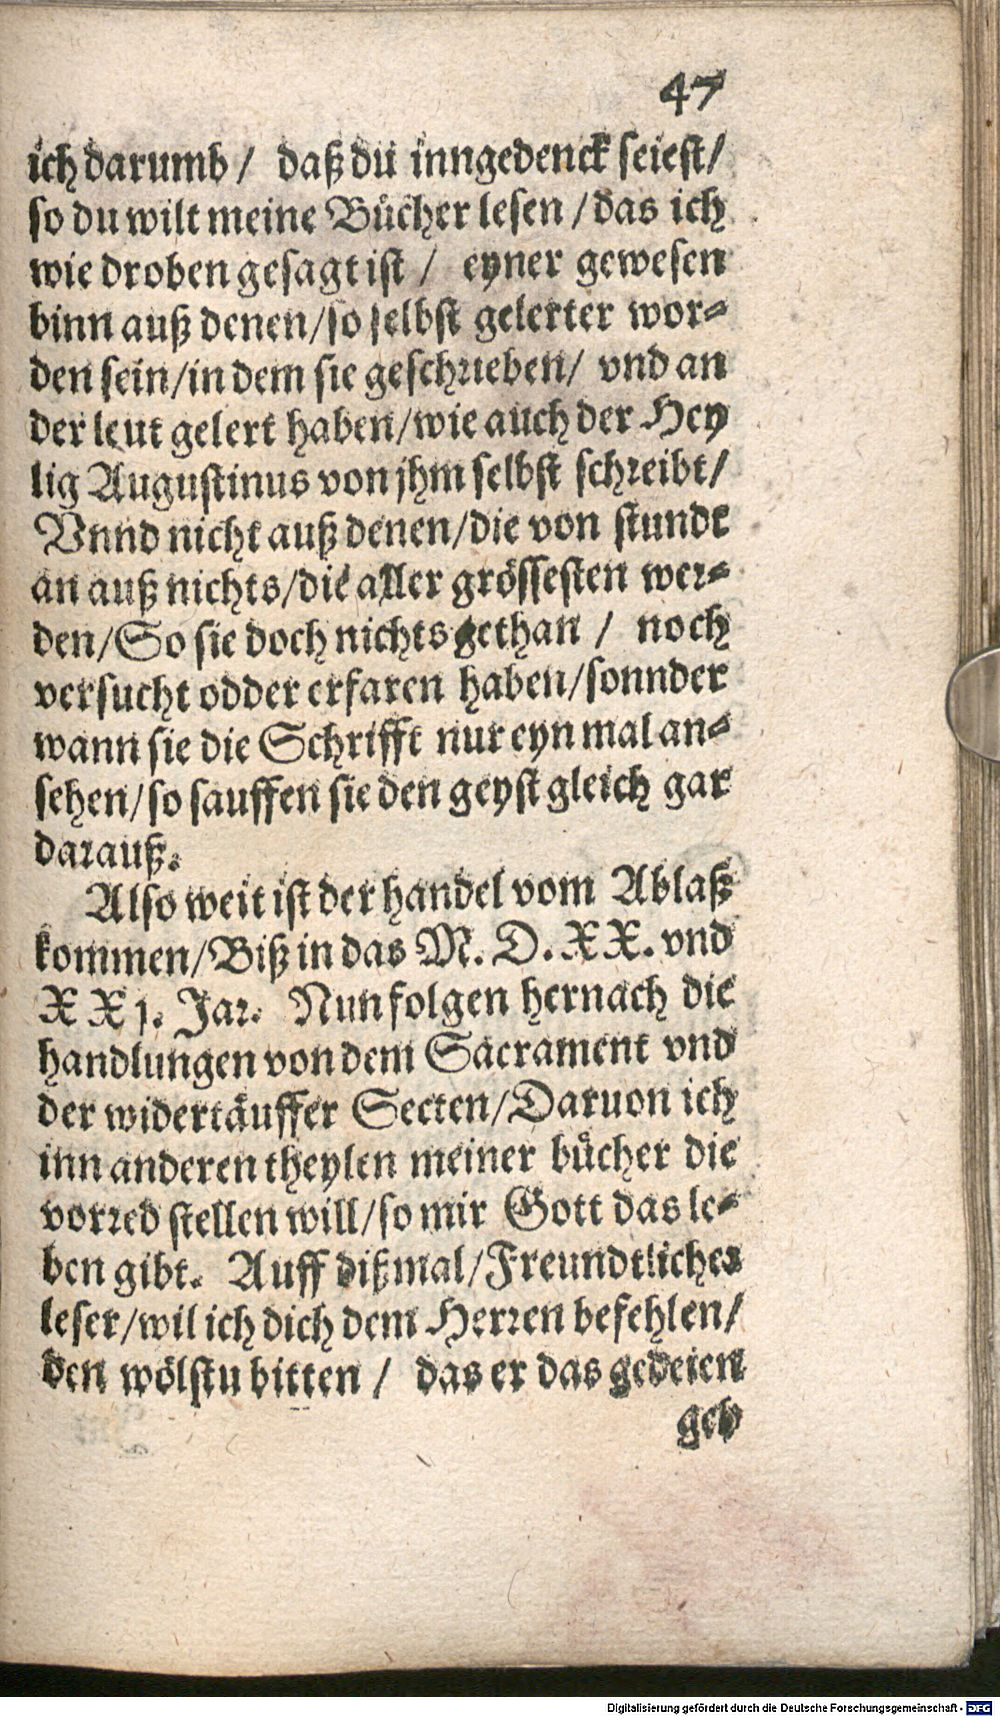 47
ich darumb / daß du inngedenck seiest /
so du wilt meine Bücher lesen / das ich
wie droben gesagt ist / eyner gewesen
binn auß denen / so selbst gelerter wor-
den sein / in dem sie geschrieben / vnd an
der leut gelert haben / wie auch der Hey
lig Augustinus von jhm selbst schreibt /
Vnnd nicht auß denen / die von stundt
an auß nichts / die aller grössesten wer-
den / So sie doch nichts gethan / noch
versucht odder erfaren haben / sonnder
wann sie die Schrifft nur eyn mal an-
sehen / so sauffen sie den geyst gleich gar
darauß.
Also weit ist der handel vom Ablaß
kommen / Biß in das M. D. XX. vnd
XXj. Jar. Nun folgen hernach die
handlungen von dem Sacrament vnd
der widertäuffer Secten / Daruon ich
inn anderen theylen meiner bücher die
vorred stellen will / so mir Gott das le-
ben gibt. Auff dißmal / Freundtlicher
leser / wil ich dich dem Herren befehlen /
den wölstu bitten / das er das gedeien
geb
Digitalisierung gefördert durch die Deutsche Forschungsgemeinschaft - DFG